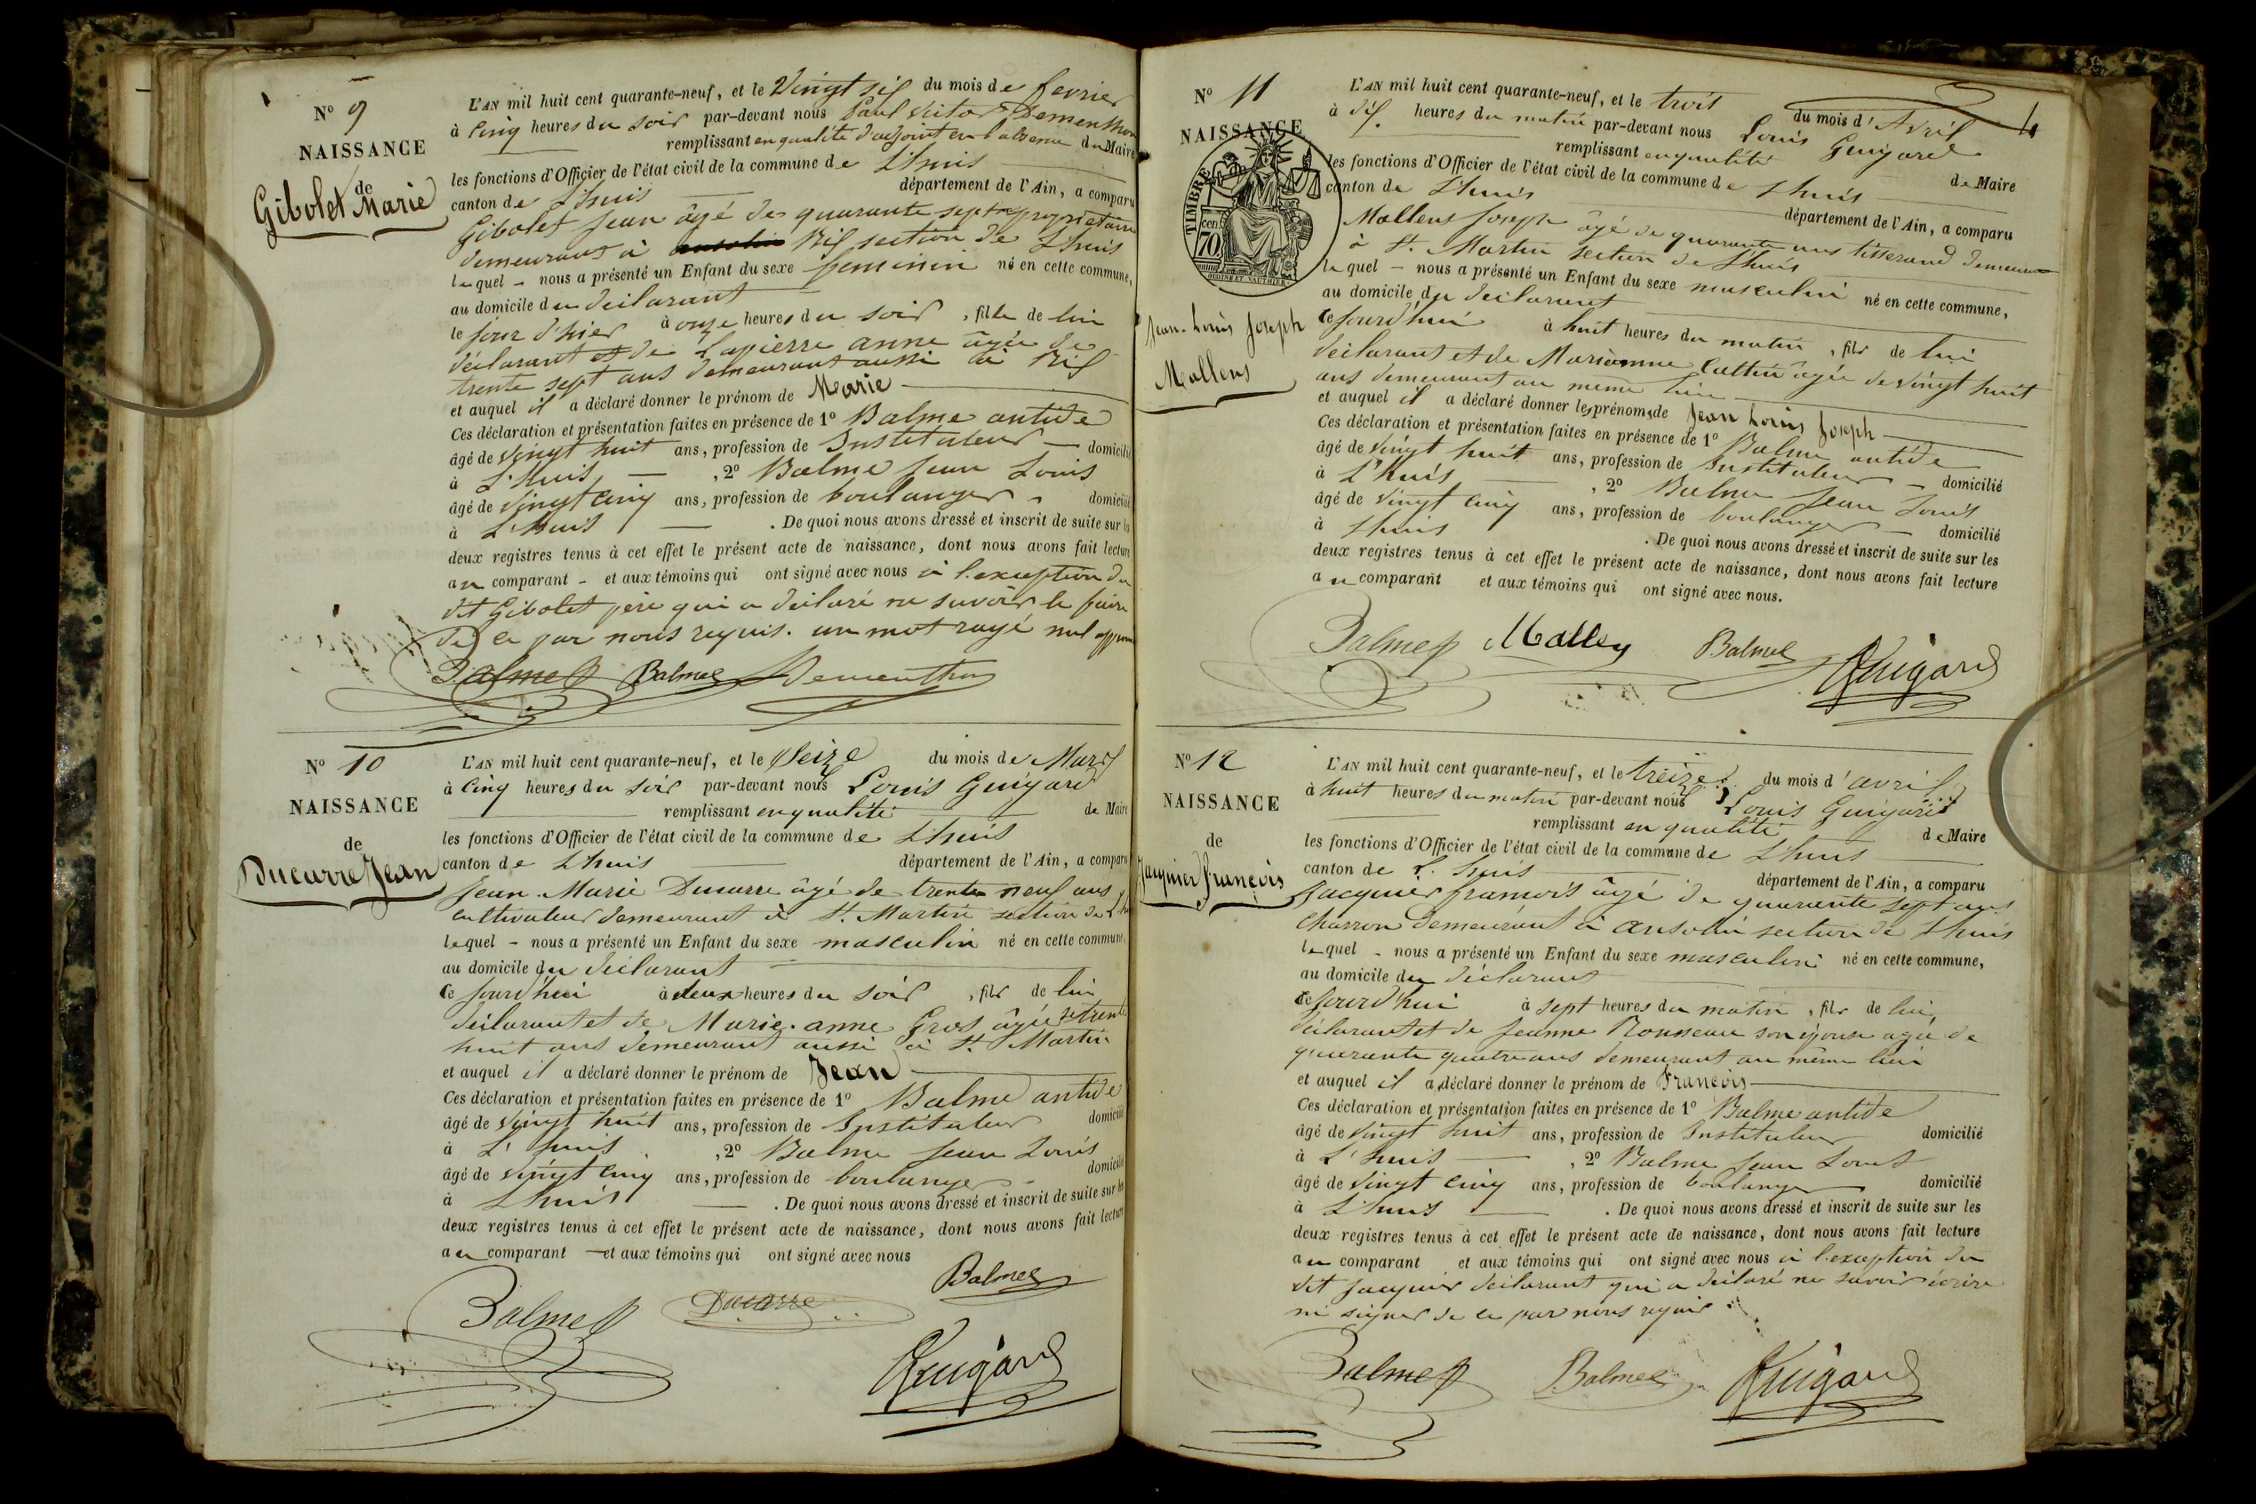 Nº 9
NAISSANCE
de
Gibolet Marie
L'AN mil huit cent quarante-neuf, et le Vingt six du mois de fevrier
à Cinq heures du soir par-devant nous Paul Victor Dementhon
remplissant en qualité d'adjoint en l'absence du Maire
les fonctions d'Officier de l'état civil de la commune de L'huis
canton de L'huis département de l'Ain, a comparu
Gibolet Jean âgé de quarante sept propriétaire
demeurant à Rix section de L'huis
lequel nous a présenté un Enfant du sexe feminin né en cette commune,
au domicile du déclarant
le jour d'hier à onze heures du soir, fille de lui
déclarant et de Lapierre anne âgée de
trente sept ans demeurant aussi à Rix
et auquel il a déclaré donner le prénom de Marie
Ces déclaration et présentation faites en présence de 1º Balme antide
âgé de vingt huit ans, profession de Instituteur domicilié
à L'huis , 2º Balme Jean Louis
âgé de Vingt Cinq ans, profession de boulanger domicilié
à L'huis . De quoi nous avons dressé et inscrit de suite sur les
deux registres tenus à cet effet le présent acte de naissance, dont nous avons fait lecture
au comparant et aux témoins qui ont signé avec nous à l'exception du
dit Gibolet père qui a déclaré ne savoir le faire
de ce par nous requis. un mot rayé nul
Balme Balme Dementhon
Nº 10
NAISSANCE
de
Ducarre Jean
L'AN mil huit cent quarante-neuf, et le Seize du mois de Mars
à Cinq heures du soir par-devant nous Louis Guigard
remplissant en qualité de Maire
les fonctions d'Officier de l'état civil de la commune de L'huis
canton de L'huis département de l'Ain, a comparu
Jean Marie Ducarre âgé de trente neuf ans
cultivateur demeurant à St. Martin section de L'huis
lequel nous a présenté un Enfant du sexe masculin né en cette commune,
au domicile du déclarant
Ce jourd'hui à deux heures du soir, fils de lui
déclarant et de Marie anne Gros âgée de trente
huit ans demeurant aussi à St. Martin
et auquel il a déclaré donner le prénom de Jean
Ces déclaration et présentation faites en présence de 1º Balme antide
âgé de Vingt huit ans, profession de Instituteur domicilié
à L'huis , 2º Balme Jean Louis
âgé de Vingt Cinq ans, profession de boulanger domicilié
à L'huis . De quoi nous avons dressé et inscrit de suite sur les
deux registres tenus à cet effet le présent acte de naissance, dont nous avons fait lecture
au comparant et aux témoins qui ont signé avec nous
Balme
Balme Ducarre
Guigard
4
Nº 11
NAISSANCE
TIMBRE
70 cen
Jean-Louis Joseph
Mollens
L'AN mil huit cent quarante-neuf, et le trois du mois d'Avril
à dix heures du matin par-devant nous Louis Guigard
remplissant en qualité de Maire
les fonctions d'Officier de l'état civil de la commune de L'huis
canton de L'huis département de l'Ain, a comparu
Mollens Joseph âgé de quarante ans tisserand demeurant
à St. Martin section de L'huis
lequel nous a présenté un Enfant du sexe masculin né en cette commune,
au domicile du déclarant
Ce jourd'hui à huit heures du matin, fils de lui
déclarant et de Marianne Cultin âgée de vingt huit
ans demeurant au même lieu
et auquel il a déclaré donner les prénoms de Jean Louis Joseph
Ces déclaration et présentation faites en présence de 1º Balme antide
âgé de Vingt huit ans, profession de Instituteur domicilié
à L'huis , 2º Balme Jean Louis
âgé de Vingt Cinq ans, profession de boulanger domicilié
à L'huis . De quoi nous avons dressé et inscrit de suite sur les
deux registres tenus à cet effet le présent acte de naissance, dont nous avons fait lecture
au comparant et aux témoins qui ont signé avec nous.
Balme Balme Guigard
Nº 12
NAISSANCE
de
Jacquier françois
L'AN mil huit cent quarante-neuf, et le treize du mois d'avril
à huit heures du matin par-devant nous Louis Guigard
remplissant en qualité de Maire
les fonctions d'Officier de l'état civil de la commune de L'huis
canton de L'huis département de l'Ain, a comparu
Jacquier françois âgé de quarante sept ans
Charron demeurant à ansolin section de L'huis
lequel nous a présenté un Enfant du sexe masculin né en cette commune,
au domicile du déclarant
Ce jourd'hui à sept heures du matin, fils de lui,
déclarant et de Jeanne Rousseau son épouse agée de
quarante quatre ans demeurant au même lieu
et auquel il a déclaré donner le prénom de François
Ces déclaration et présentation faites en présence de 1º Balme antide
âgé de Vingt huit ans, profession de Instituteur domicilié
à L'huis , 2º Balme Jean Louis
âgé de Vingt Cinq ans, profession de boulanger domicilié
à L'huis . De quoi nous avons dressé et inscrit de suite sur les
deux registres tenus à cet effet le présent acte de naissance, dont nous avons fait lecture
au comparant et aux témoins qui ont signé avec nous à l'exception du
dit Jacquier déclarant qui a déclaré ne savoir écrire
ni signer de ce par nous requis
Balme Balme Guigard